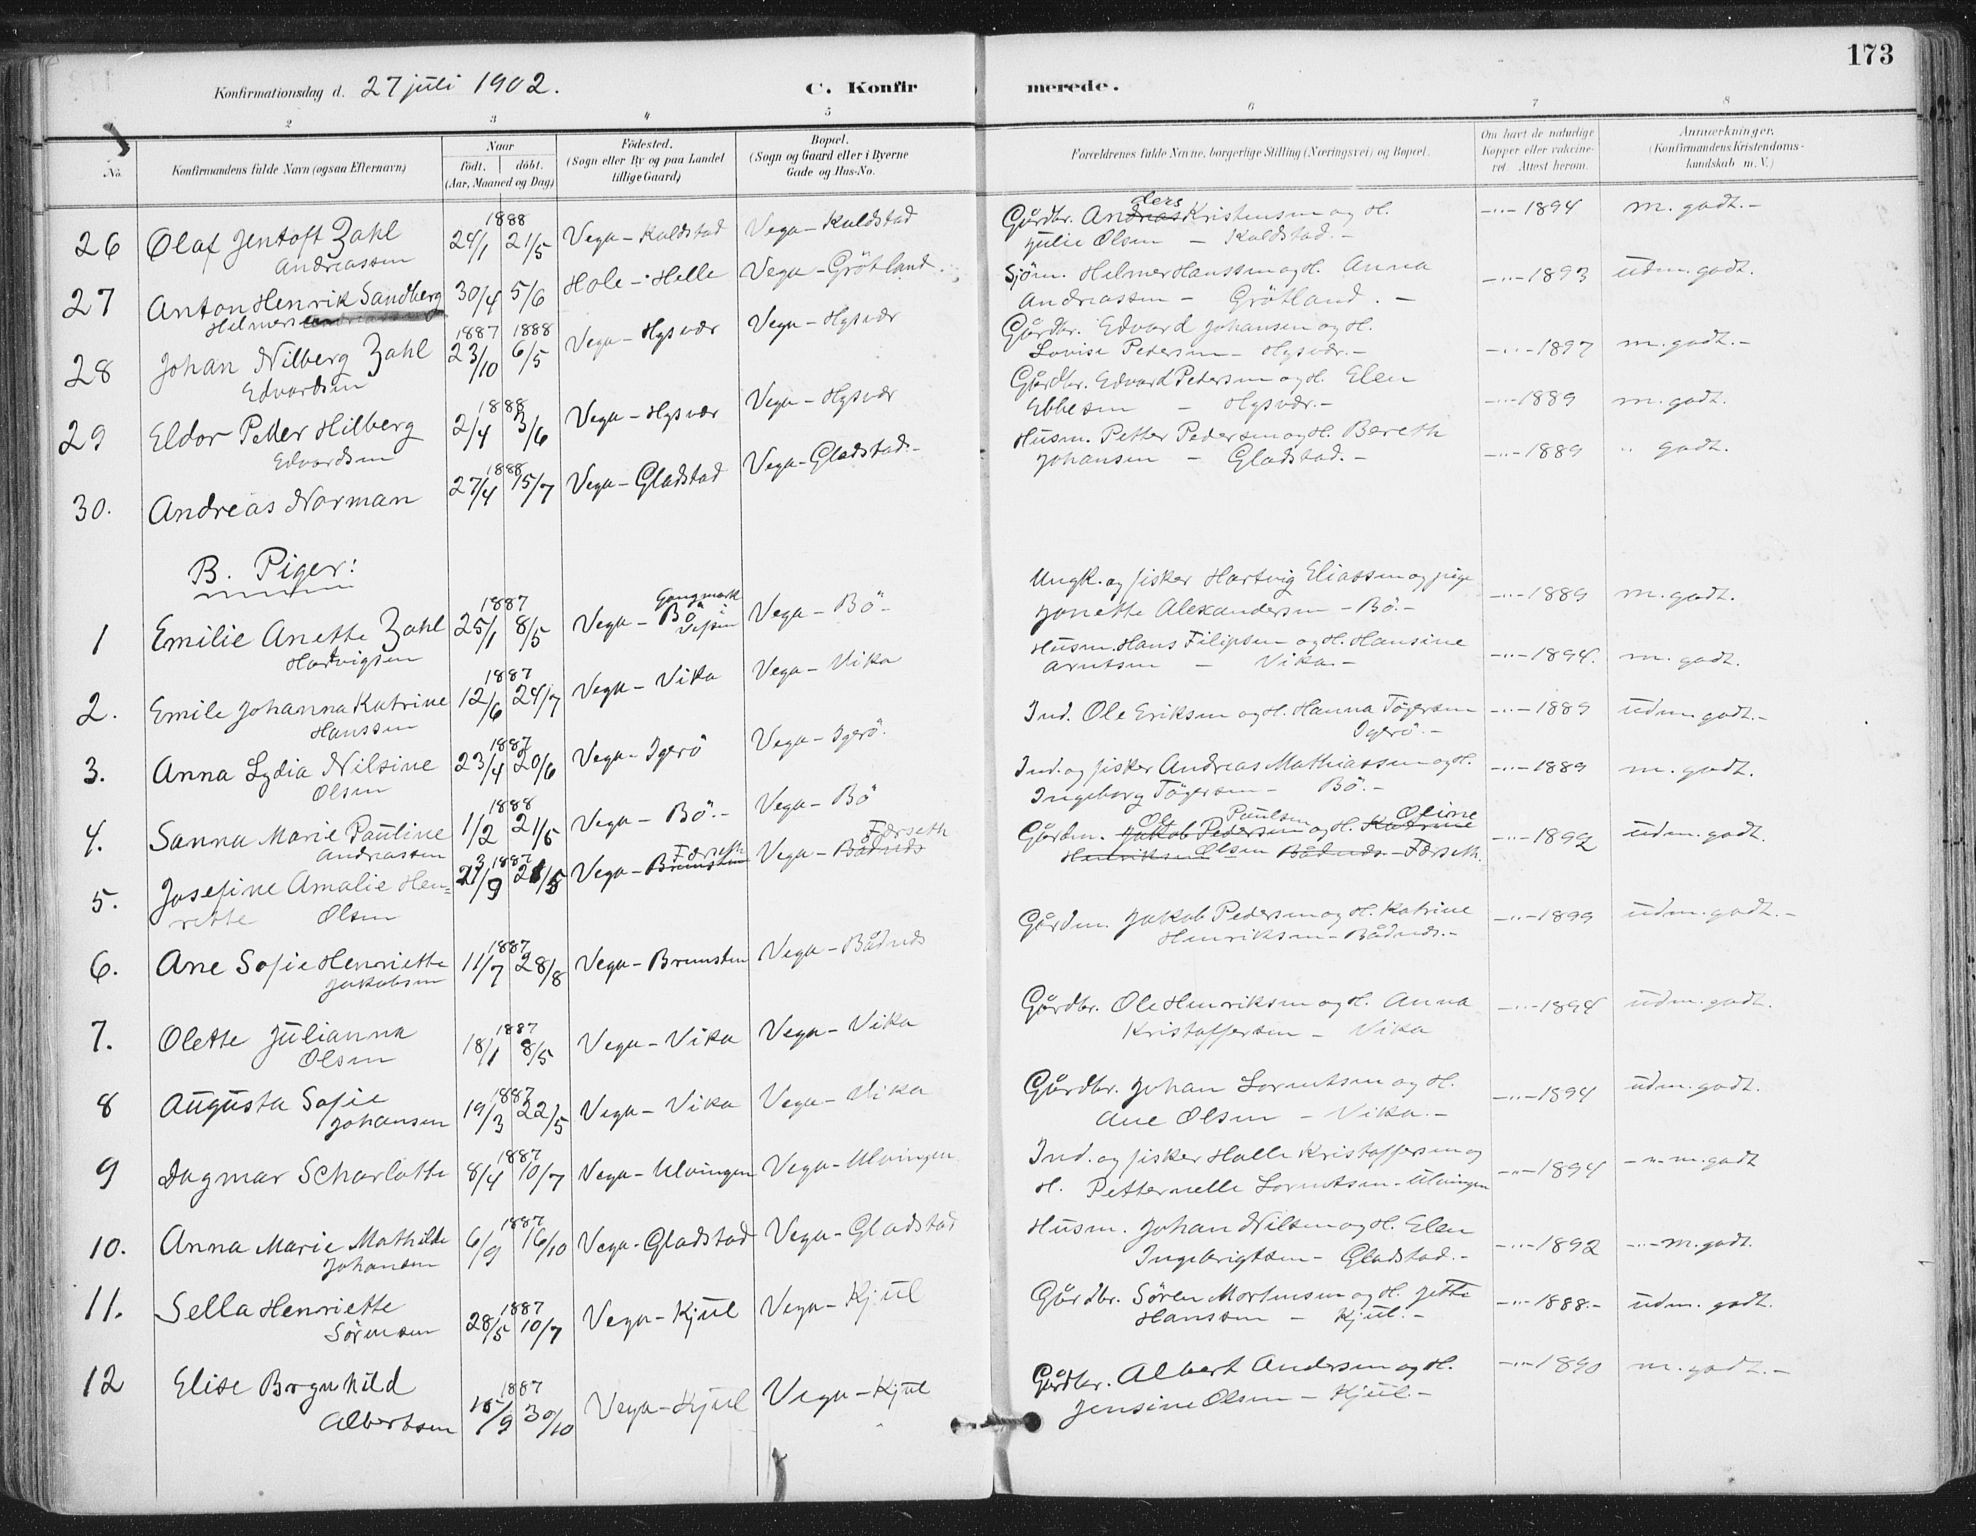 173
Konfirmationsdag d. 27 juli 1902.
C. Konfirmerede.
2 3 4 5 6 7 8
No.
Konfirmandens fulde Navn (ogsaa Efternavn)
Naar
födt. döbt.
(Aar, Maaned og Dag)
Födested.
(Sogn eller By og paa Landet
tillige Gaard)
Bopæl.
(Sogn og Gaard eller i Byerne
Gade og Hus-No.
Forældrenes fulde Navne, borgerlige Stilling (Næringsvei) og Bopæl.
Om havt de naturlige
Kopper eller vakcine-
ret. Attest herom.
Anmærkninger.
(Konfirmandens Kristendoms-
kundskab m. V.)
26 Olaf Jentoft Zahl
Andreassen
1888
24/1 21/5
Vega - Kuldstad
Vega - Kuldstad
Gårdbr. Andreas ders Kristensen og H.
Julie Olsen - Kuldstad. -
-"- 1894
m. godt. -
27 Anton Henrik Sandberg
Helmersen
30/4 5/6
Hole - Helle
Vega - Grötland.
Sjöm. Helmer Hanssen og H. Anna
Andreassen - Grötland. -
-"- 1893
udm. godt.
28 Johan Nilberg Zahl
Edvardsen
1887 1888
23/10 6/5
Vega - Hysvær
Vega - Hysvær
Gårdbr. Edvard Johansen og H.
Lovise Pedersen - Hysvær. -
-"- 1897
m. godt. -
29 Eldor Petter Hilberg
Edvardsen
1888
2/4 3/6
Vega - Hysvær
Vega - Hysvær
Gårdbr. Edvard Pedersen og H. Elen
Ebbesen - Hysvær. -
-"- 1889
m. godt.
30. Andreas Norman
1888
27/4 15/7
Vega - Gladstad
Vega - Gladstad. -
Husm. Petter Pedersen og H. Bereth
Johansen - Gladstad. -
-"- 1889
" godt.
B. Piger:
1 Emilie Anette Zahl
Hartvigsen
1887
25/1 8/5
Vega - Bö
Gangmark
i
Vefsen
Vega - Bö -
Ungk. og fisker Hartvig Eliassen og pige
Jonette Alexandersen - Bö. -
-"- 1889
m. godt.
2. Emile Johanna Katrine
Hanssen
1887
12/6 24/7
Vega - Vika
Vega - Vika
Husm. Hans Filipsen og H. Hansine
Arntsen - Vika. -
-"- 1894.
m. godt.
3. Anna Lydia Nilsine
Olsen
1887
23/4 20/6
Vega - Igerö
Vega - Igerö.
Ind. Ole Eriksen og H. Hanna Tögersen
Igerö. -
-"- 1889
udm. godt. -
4. Sanna Marie Pauline
Andreassen
1888
1/2 21/5
Vega - Bö. -
Vega - Bö
Ind. og fisker Andreas Mathiassen og H.
Ingeborg Tögersen - Bö. -
-"- 1889
m. godt.
5. Josefine Amalie Hen=
rette Olsen
1887
Vega - Brunsten Færseth
Vega - Bådnæs Færseth
Ole Paulsen Oline
Gårdm. Jakob Pedersen og H. Katrine
Henriksen Olsen Bådnæs - Færseth.
-"- 1892
udm. godt
6. Ane Sofie Henriette
Jakobsen
1887
11/7 28/8
Vega - Brunsten
Vega - Bådnæs
Gårdm. Jakob Pedersen og H. Katrine
Henriksen - Bådnæs. -
-"- 1899
udm. godt. -
7. Olette Julianna
Olsen
1887
18/1 8/5
Vega - Vika
Vega - Vika
Gårdbr. Ole Henriksen og H. Anna
Kristoffersen - Vika
-"- 1894
udm. godt.
8 Augusta Sofie
Johansen
1887
19/3 22/5
Vega - Vika
Vega - Vika
Gårdbr. Johan Lorentsen og H.
Ane Olsen - Vika. -
-"- 1894
udm. godt.
9 Dagmar Scharlotte
1887
8/4 10/7
Vega - Ulvingen
Vega - Ulvingen
Ind. og fisker Halle Kristoffersen og
H. Petternelle Lorntsen - Ulvingen
-"- 1894
-"- m. godt
10. Anna Marie Mathilde
Johansen
1887
6/9 16/10
Vega - Gladstad
Vega - Gladstad
Husm. Johan Nilsen og H. Elen
Ingebrigtsen - Gladstad. -
-"- 1892
-"- m. godt.
11. Sella Henriette
Sörensen
1887
28/5 10/7
Vega - Kjul
Vega - Kjul
Gårdbr. Sören Mortensen og H. Jette
Hanssen - Kjul. -
-"- 1888. -
udm. godt.
12 Elise Brynhild
Albertsen
1887
15/9 30/10
Vega - Kjul
Vega - Kjul
Gårdbr. Albert Andersen og H.
Jensine Olsen - Kjul. -
-"- 1890
m. godt. -